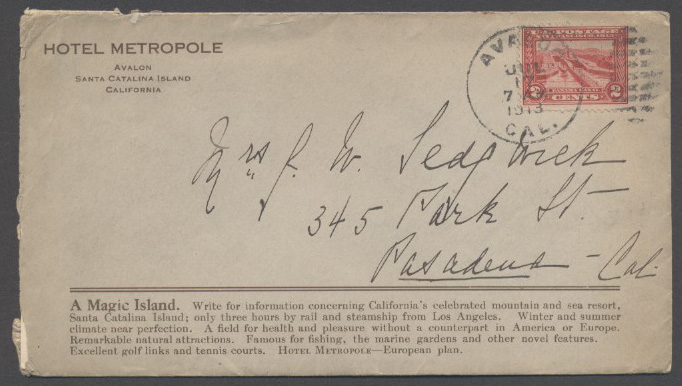 HOTEL METROPOLE
AVALON
SANTA CATALINA ISLAND
CALIFORNIA
AVALON
JUL
1913
CAL.
2 CENTS 2
Mrs J. W. Sedgwick
345 Park St.
Pasadena - Cal.
A Magic Island. Write for information concerning California's celebrated mountain and sea resort,
Santa Catalina Island; only three hours by rail and steamship from Los Angeles. Winter and summer
climate near perfection. A field for health and pleasure without a counterpart in America or Europe.
Remarkable natural attractions. Famous for fishing, the marine gardens and other novel features.
Excellent golf links and tennis courts. HOTEL METROPOLE—European plan.